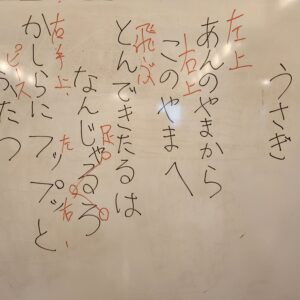 うさぎ
左上
あんのやまから
右上
このやまへ
飛ぶ
とんできたるは
なんじゃろろ
足
左、右、
右手上
かしらにフップッと
ピース
ふたつ